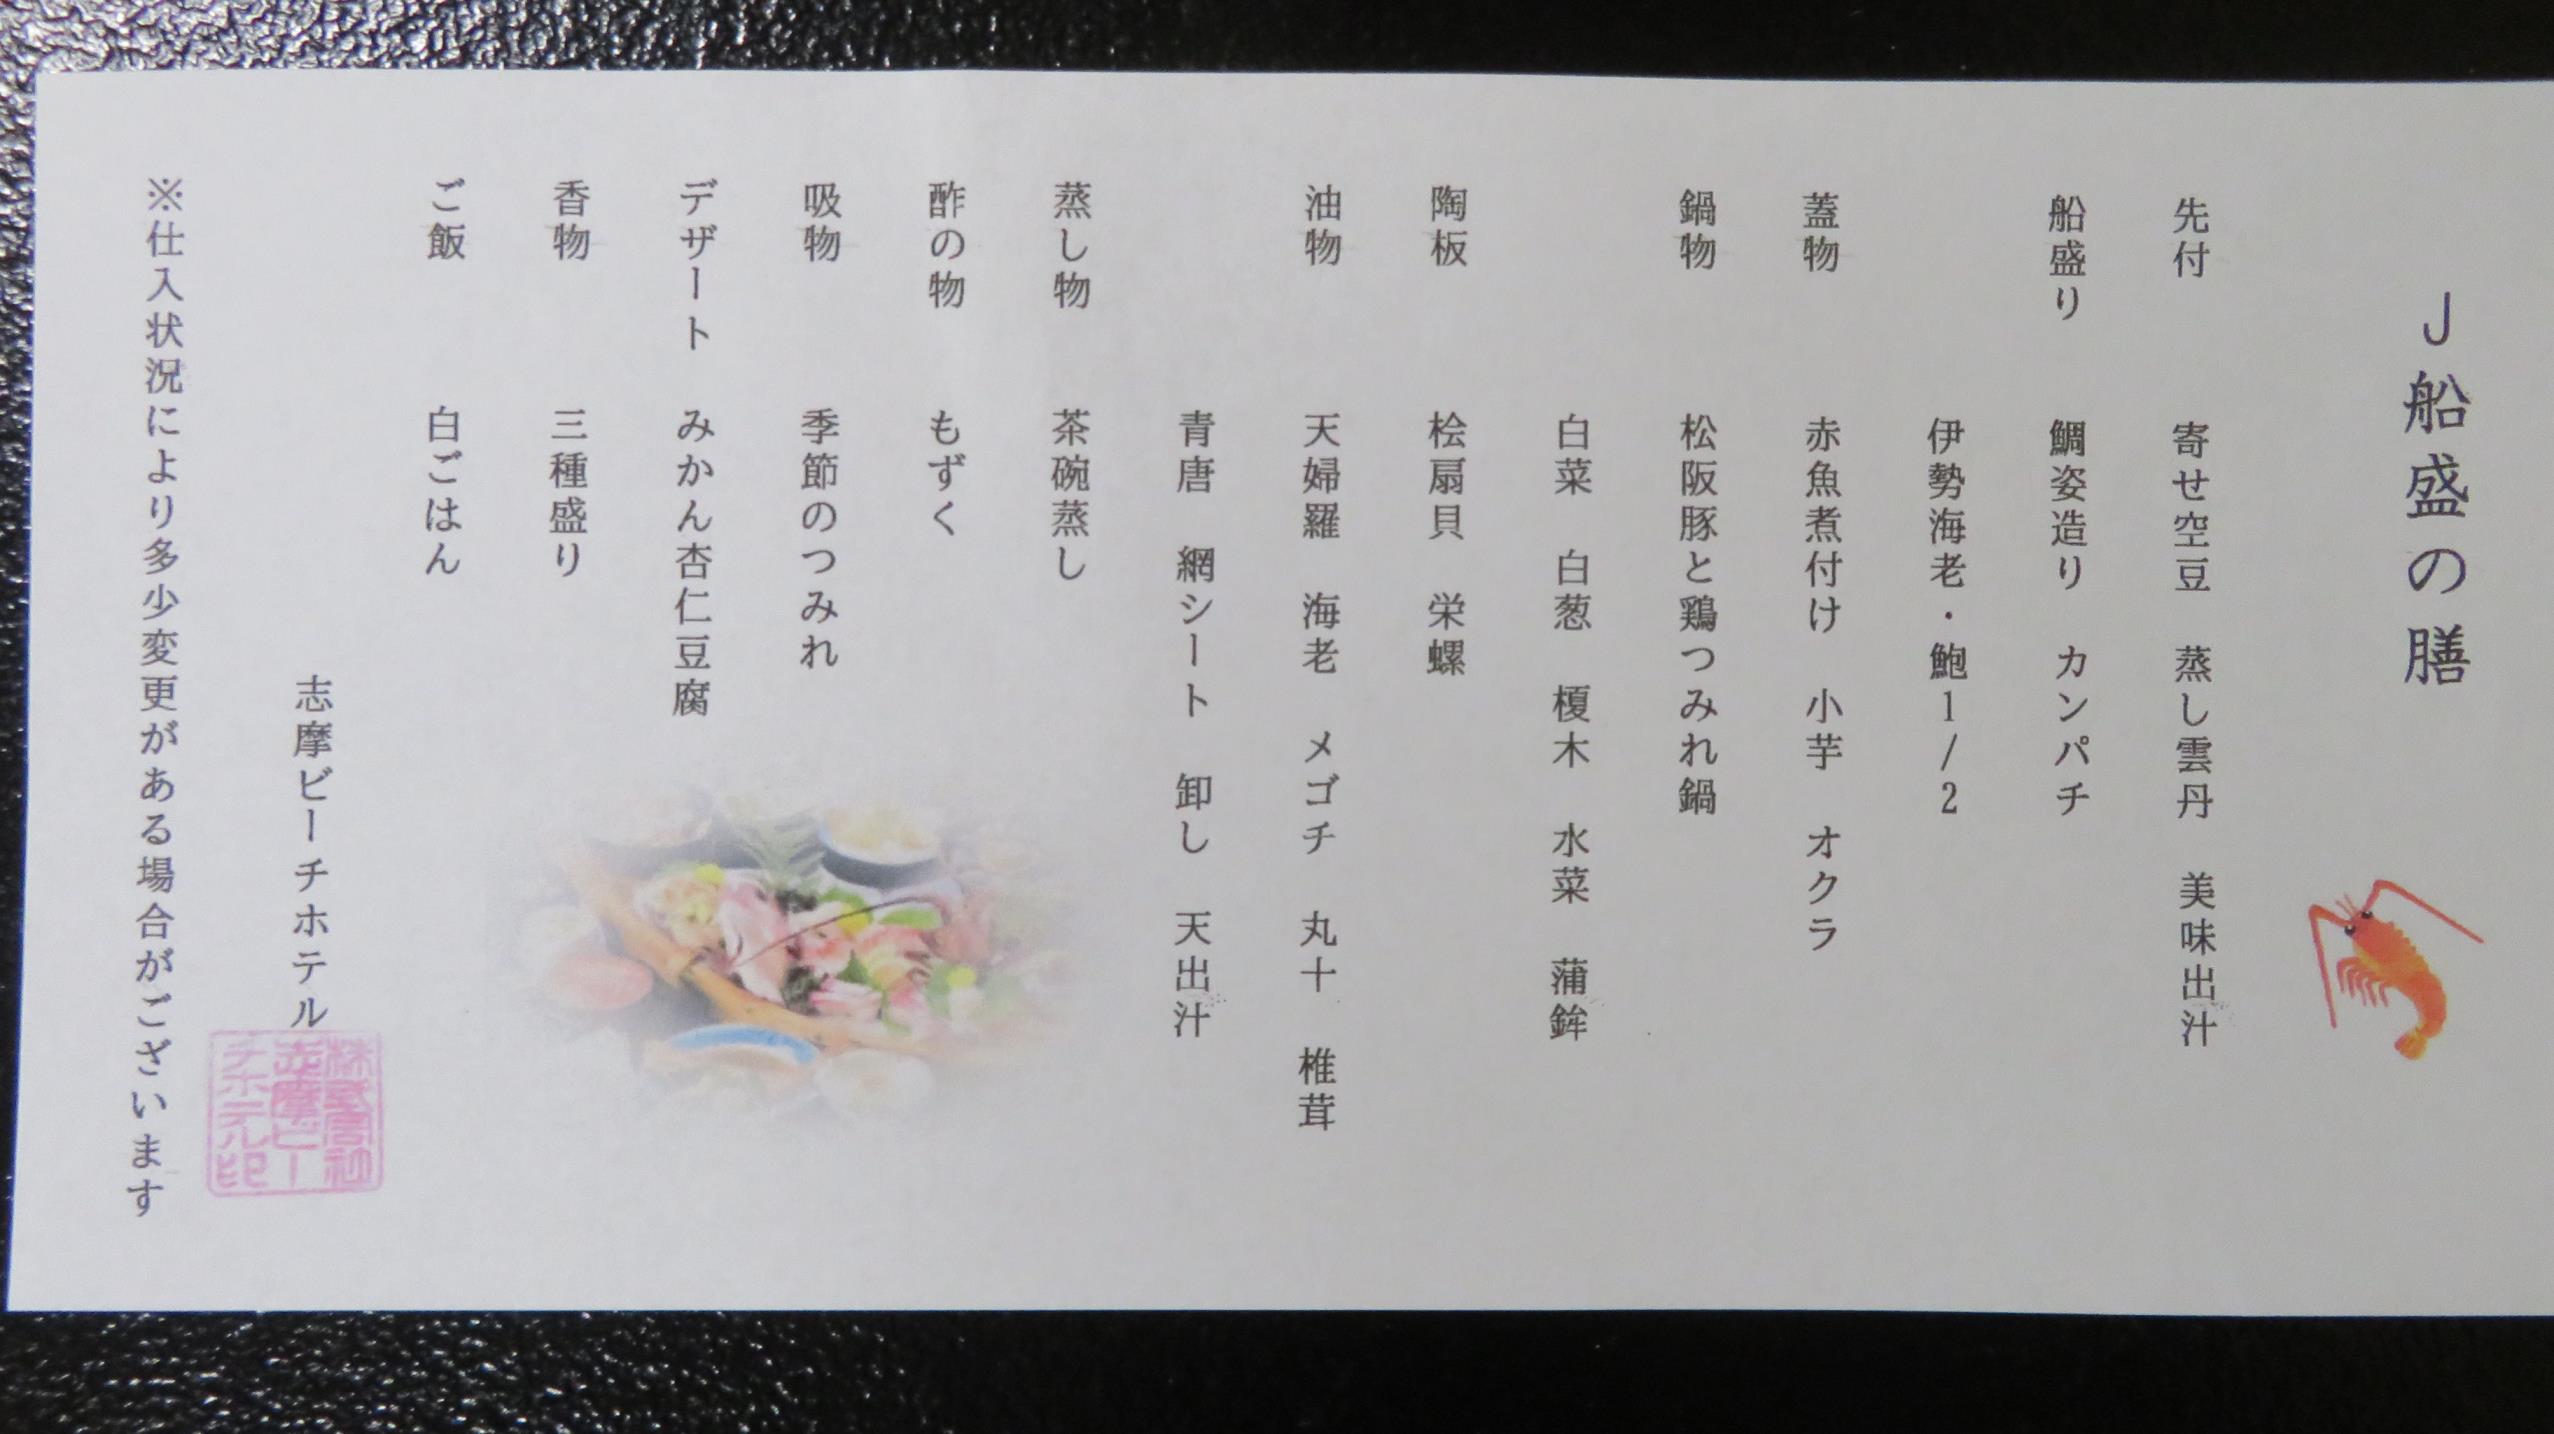 J船盛の膳
先付　寄せ空豆　蒸し雲丹　美味出汁
船盛り　鯛姿造り　カンパチ
伊勢海老・鮑1/2
蓋物　赤魚煮付け　小芋　オクラ
鍋物　松阪豚と鶏つみれ鍋
白菜　白葱　榎木　水菜　蒲鉾
陶板　桧扇貝　栄螺
油物　天婦羅　海老　メゴチ　丸十　椎茸
青唐　網シート　卸し　天出汁
蒸し物　茶碗蒸し
酢の物　もずく
吸物　季節のつみれ
デザート　みかん杏仁豆腐
香物　三種盛り
ご飯　白ごはん
志摩ビーチホテル
株式会社
志摩ビー
チホテル印
※仕入状況により多少変更がある場合がございます